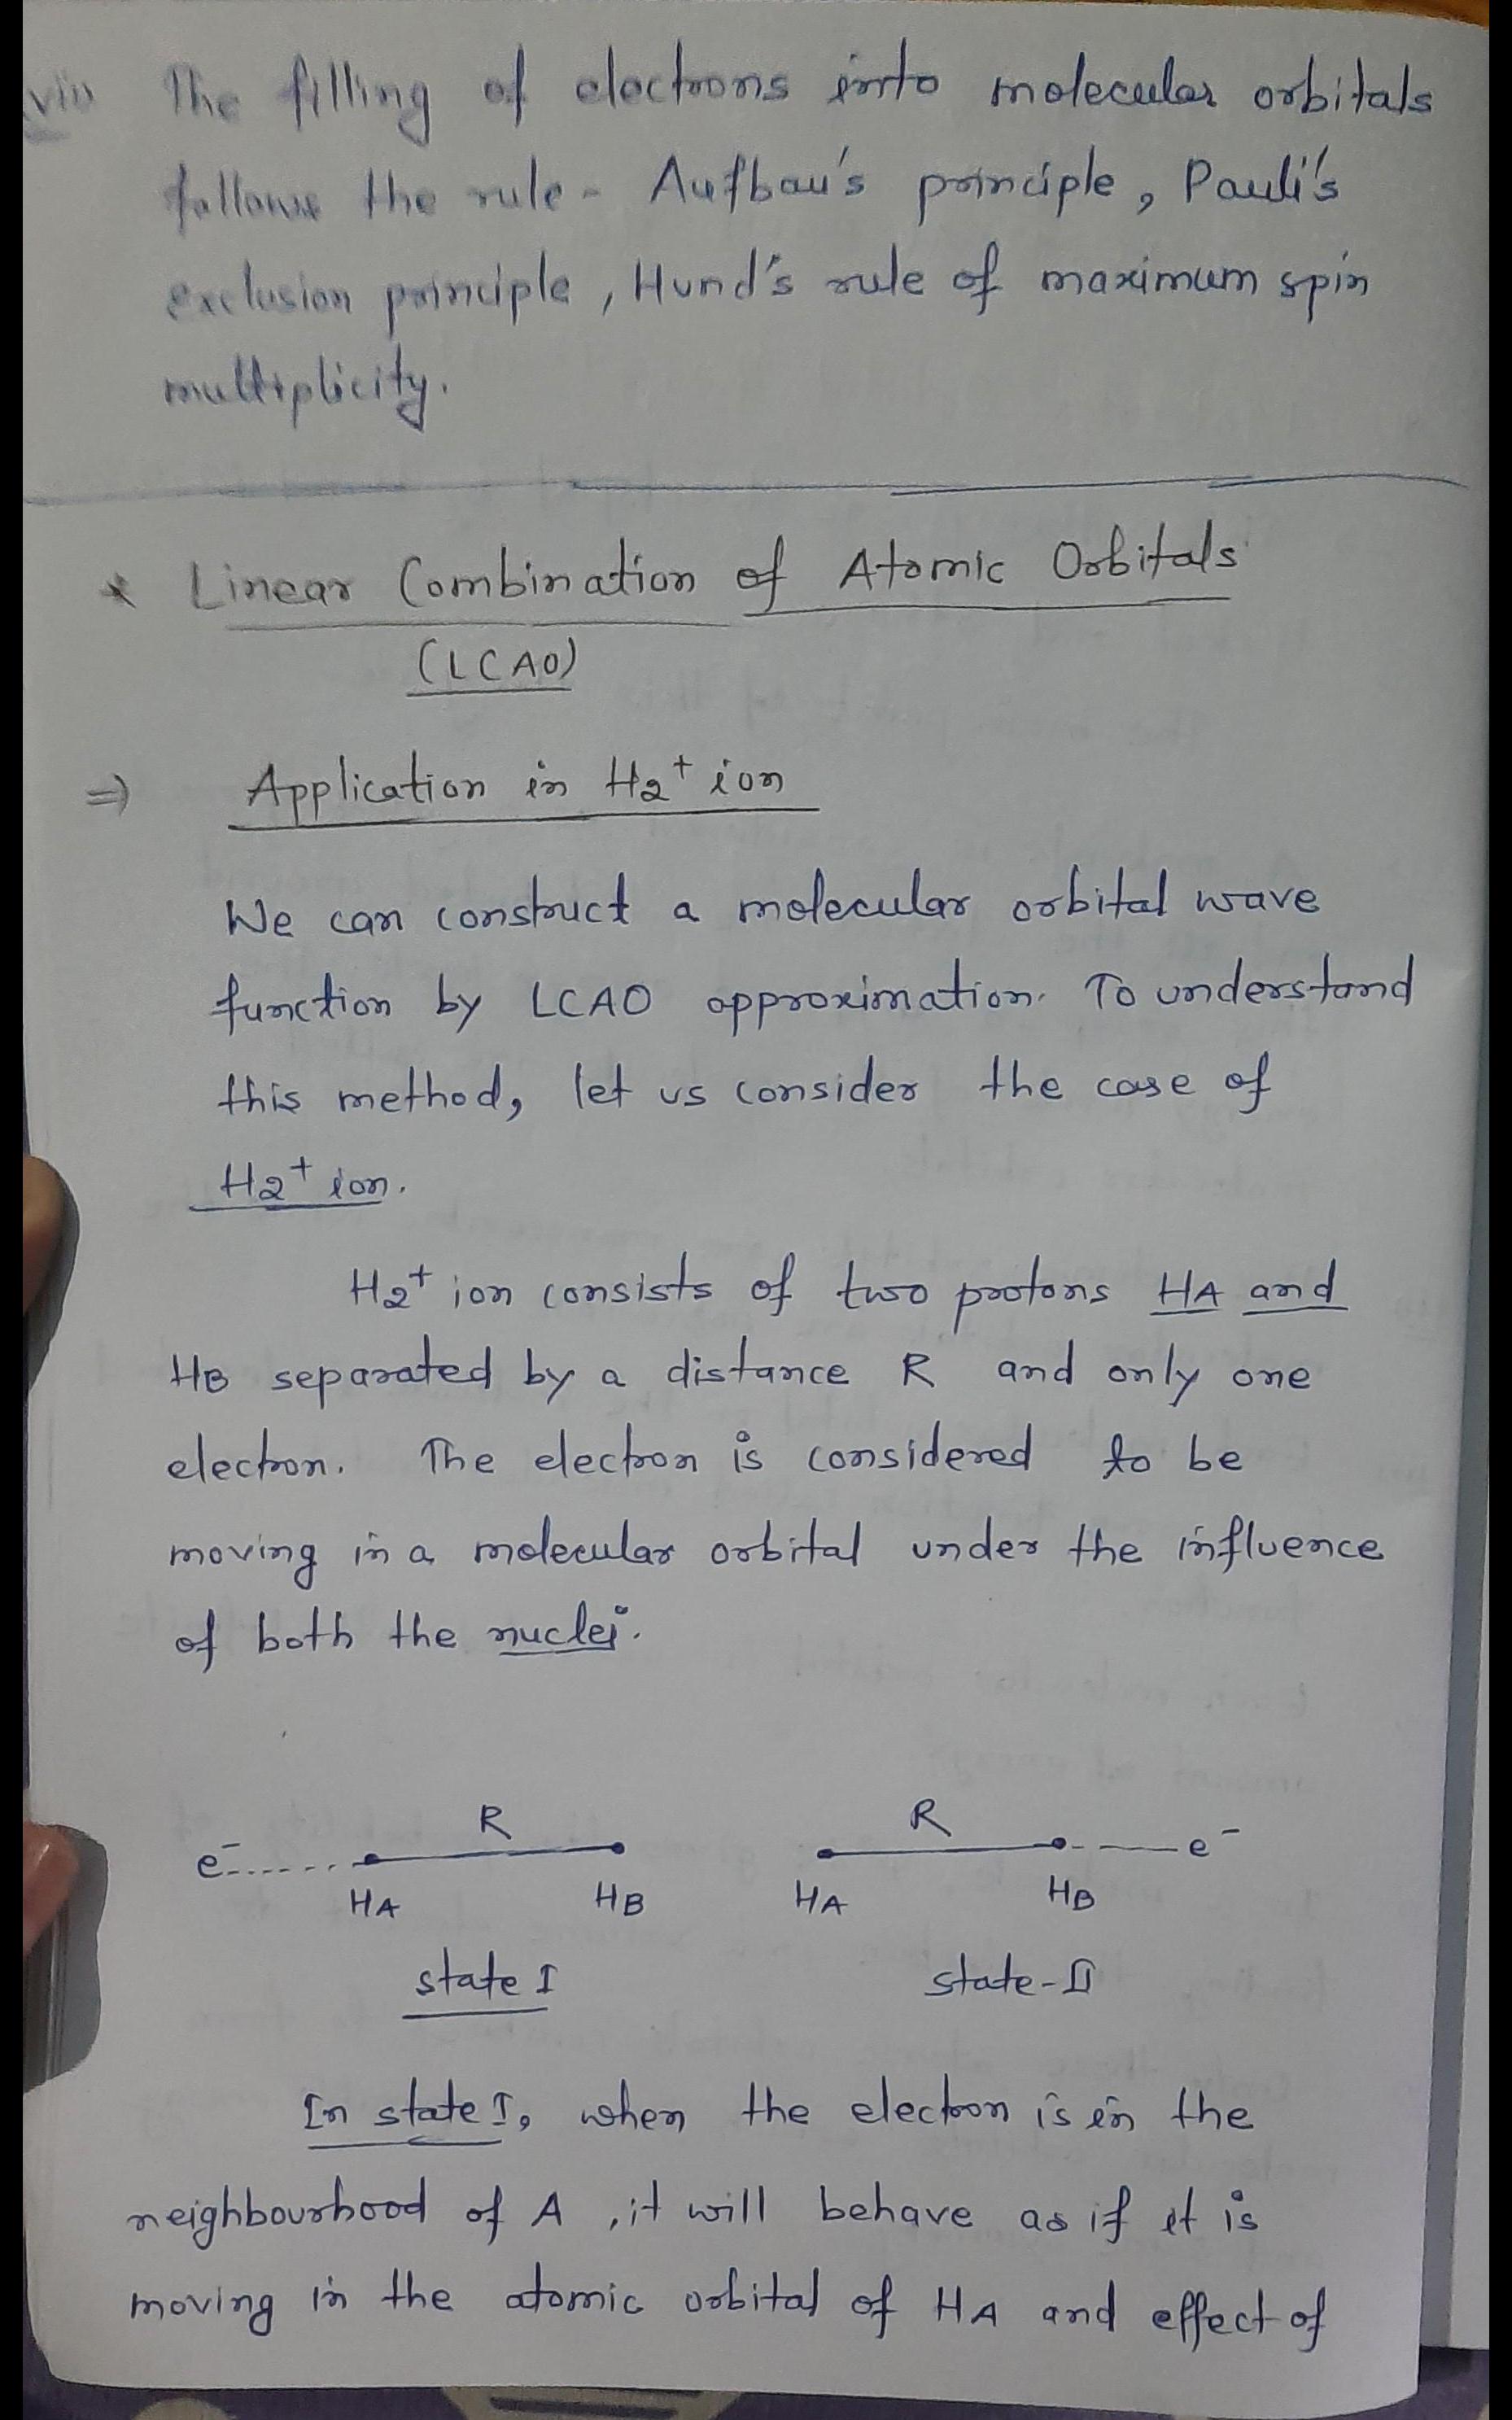 vii) The filling of electrons into molecular orbitals
follows the rule - Aufbau's principle, Pauli's
exclusion principle, Hund's rule of maximum spin
multiplicity.
* Linear Combination of Atomic Orbitals
(LCAO)
⇒ Application in H2+ ion
We can construct a molecular orbital wave
function by LCAO approximation. To understand
this method, let us consider the case of
H2+ ion.
H2+ ion consists of two protons HA and
HB separated by a distance R and only one
electron. The electron is considered to be
moving in a molecular orbital under the influence
of both the nuclei.
R R
e- HA HB HA HB e-
state I state-II
In state I, when the electron is in the
neighbourhood of A, it will behave as if it is
moving in the atomic orbital of HA and effect of